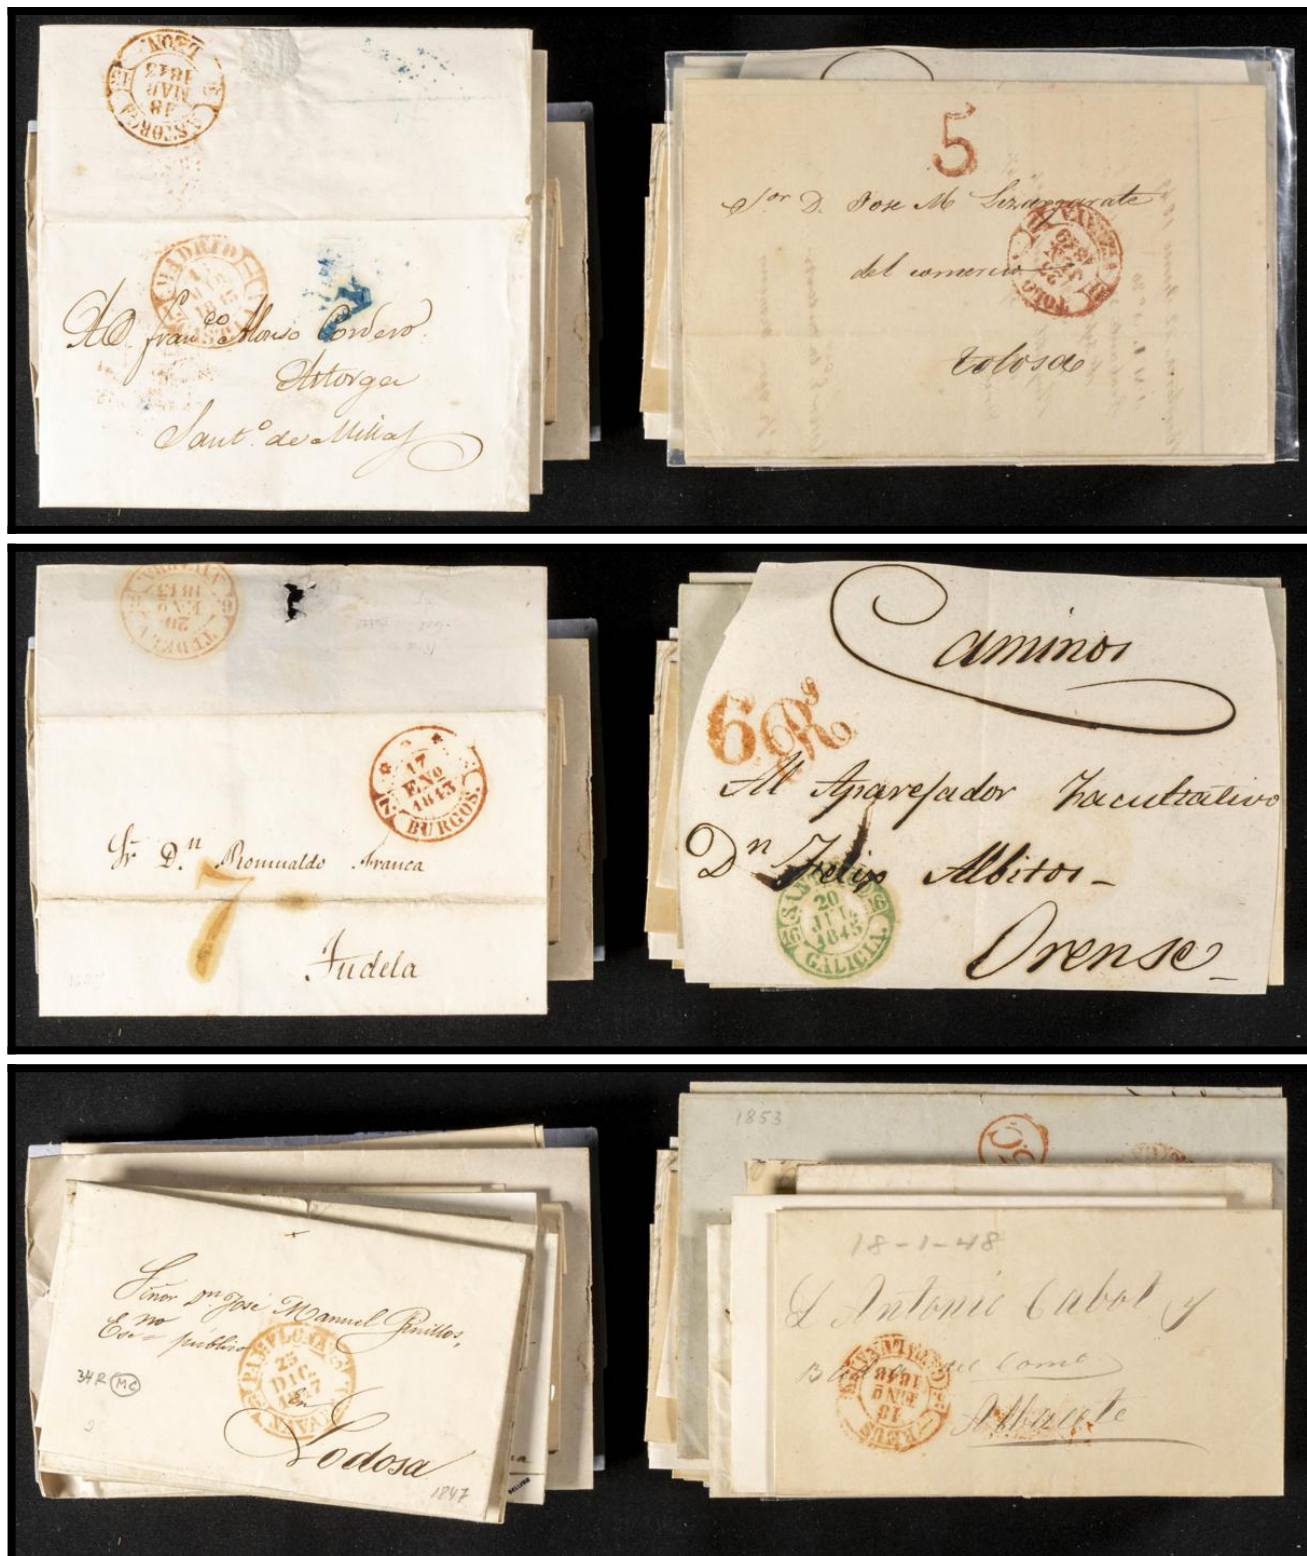 ASTORGA
18
MAR
1843
LEON
MADRID
MAR
1843
A D. Fran.co Alonso Cordero.
Astorga
Sant.o de Millas
5
S.or D. Jose M Lizarzarate
del comercio
Tolosa
TUDELA
20
ENO
1843
NAVARRA
17
ENO
1843
BURGOS.
Sr. D.n Romualdo Franca
7
Tudela
Caminos
6 Rs
Al Aparejador Facultativo
Dn Felip Albitos
20
JUL
1845
16
GALICIA.
Orense
Señor Dn. José Manuel Pinillos,
Esno público
PAMPLONA
25
DIC.
1847
34R MC
En
Lodosa
1847
1853
18-1-48
D Antonio Cabot y
REUS
18
ENO
1848
Albacete